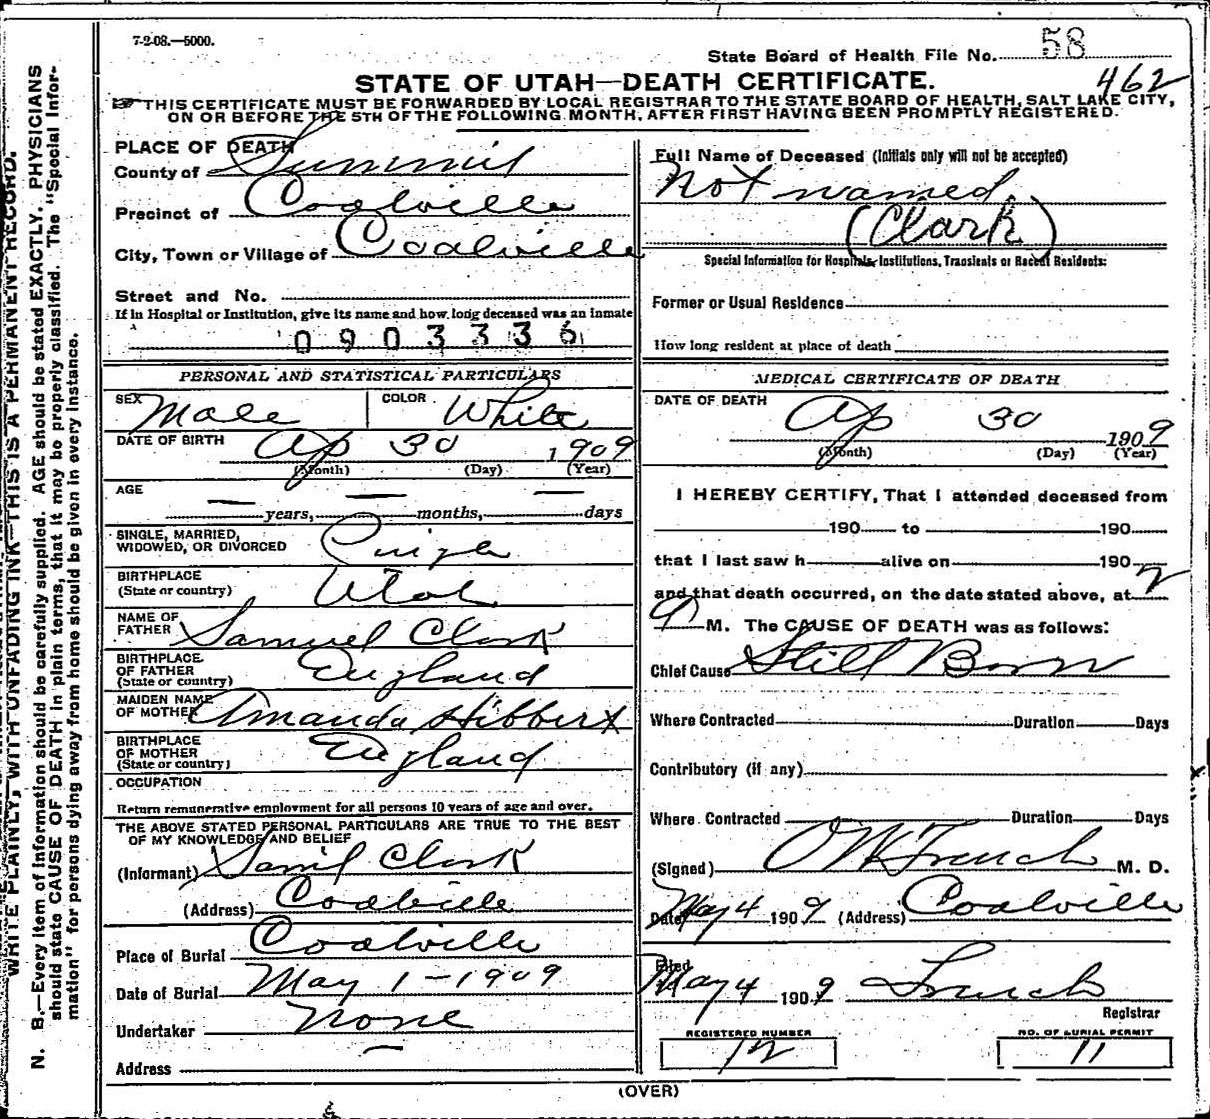 7-2-08.—5000.
State Board of Health File No. 58
462
STATE OF UTAH—DEATH CERTIFICATE.
THIS CERTIFICATE MUST BE FORWARDED BY LOCAL REGISTRAR TO THE STATE BOARD OF HEALTH, SALT LAKE CITY,
ON OR BEFORE THE 5TH OF THE FOLLOWING MONTH, AFTER FIRST HAVING BEEN PROMPTLY REGISTERED.
WRITE PLAINLY, WITH UNFADING INK—THIS IS A PERMANENT RECORD.
N. B.—Every item of information should be carefully supplied. AGE should be stated EXACTLY. PHYSICIANS
should state CAUSE OF DEATH in plain terms, that it may be properly classified. The "Special Infor-
mation" for persons dying away from home should be given in every instance.
PLACE OF DEATH
County of Summit
Precinct of Coalville
City, Town or Village of Coalville
Street and No.
If in Hospital or Institution, give its name and how long deceased was an inmate
0903336
PERSONAL AND STATISTICAL PARTICULARS
SEX Male COLOR White
DATE OF BIRTH Ap 30 1909
(Month) (Day) (Year)
AGE
— years, — months, — days
SINGLE, MARRIED,
WIDOWED, OR DIVORCED Single
BIRTHPLACE
(State or country) Utah
NAME OF
FATHER Samuel Clark
BIRTHPLACE
OF FATHER
(State or country) England
MAIDEN NAME
OF MOTHER Amanda Hibbert
BIRTHPLACE
OF MOTHER
(State or country) England
OCCUPATION
Return remunerative employment for all persons 10 years of age and over.
THE ABOVE STATED PERSONAL PARTICULARS ARE TRUE TO THE BEST
OF MY KNOWLEDGE AND BELIEF
(Informant) Saml Clark
(Address) Coalville
Place of Burial Coalville
Date of Burial May 1-1909
Undertaker None
Address —
Full Name of Deceased (Initials only will not be accepted)
Not named
(Clark)
Special Information for Hospitals, Institutions, Transients or Recent Residents:
Former or Usual Residence
How long resident at place of death
MEDICAL CERTIFICATE OF DEATH
DATE OF DEATH
Ap 30 1909
(Month) (Day) (Year)
I HEREBY CERTIFY, That I attended deceased from
190 to 190
that I last saw h alive on 190
and that death occurred, on the date stated above, at 2
M. The CAUSE OF DEATH was as follows:
Chief Cause Still Born
Where Contracted Duration Days
Contributory (if any)
Where Contracted Duration Days
(Signed) French M. D.
Date May 4 1909 (Address) Coalville
Filed
May 4 1909 French
Registrar
REGISTERED NUMBER
12
NO. OF BURIAL PERMIT
11
(OVER)